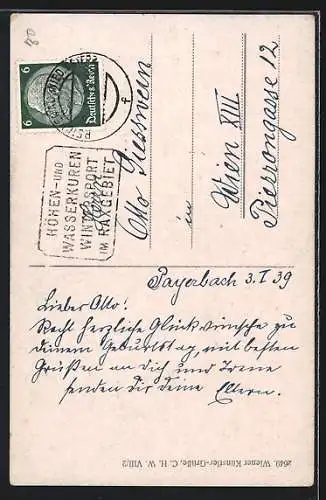 80
6 6
Deutsches Reich
HÖHEN- UND
WASSERKUREN
WINTERSPORT
IM RAXGEBIET
Otto Giessween
in
Wien XIII
Pierrongasse 12
Payerbach 3. I 39
Lieber Otto!
Recht herzliche Glückwünsche zu
deinem Geburtstag, mit besten
Grüßen an dich und Irene
senden dir deine Eltern.
2649. Wiener Künstler-Grüße, C. H. W. VIII/2